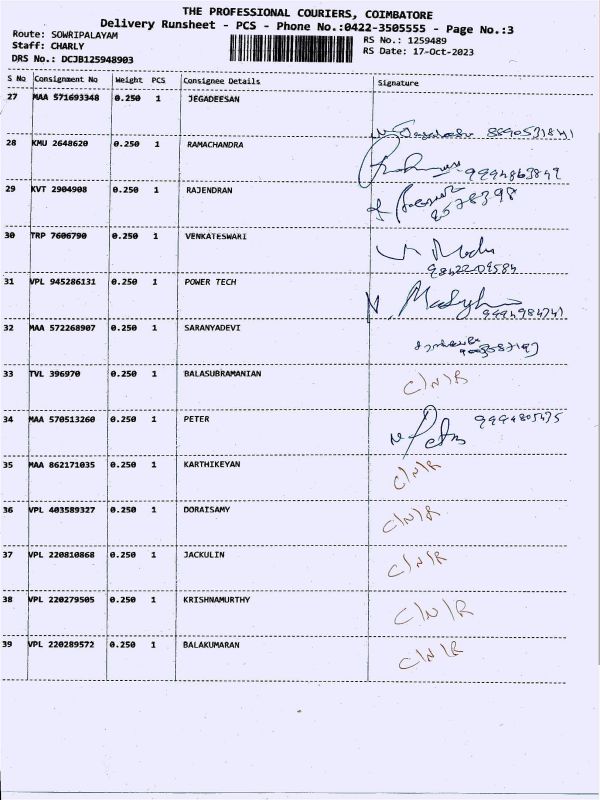 THE PROFESSIONAL COURIERS, COIMBATORE
Delivery Runsheet - PCS - Phone No.:0422-3505555 - Page No.:3
Route: SOWRIPALAYAM
RS No.: 1259489
Staff: CHARLY
RS Date: 17-Oct-2023
DRS No.: DCJB125948903
S No Consignment No Weight PCS Consignee Details Signature
27 MAA 571693348 0.250 1 JEGADEESAN
28 KMU 2648620 0.250 1 RAMACHANDRA
29 KVT 2904908 0.250 1 RAJENDRAN
30 TRP 7606790 0.250 1 VENKATESWARI
31 VPL 945286131 0.250 1 POWER TECH
32 MAA 572268907 0.250 1 SARANYADEVI
33 TVL 396970 0.250 1 BALASUBRAMANIAN C\N\R
34 MAA 570513260 0.250 1 PETER
35 MAA 862171035 0.250 1 KARTHIKEYAN C\N\R
36 VPL 403589327 0.250 1 DORAISAMY C\N\R
37 VPL 220810868 0.250 1 JACKULIN C\N\R
38 VPL 220279505 0.250 1 KRISHNAMURTHY C\N\R
39 VPL 220289572 0.250 1 BALAKUMARAN C\N\R